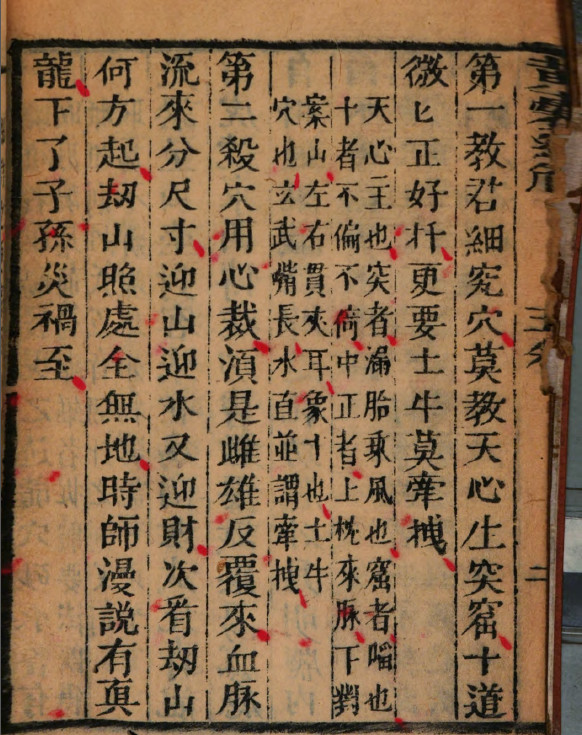 第一教君細究穴莫教天心生突窟十道
微匕正好扦更要土牛莫牽拽
天心主也突者漏胎乘風也窟者㗖也
十者不偏不倚中正者上枕來脉下對
案山左右貫夾耳象十也土牛
穴也玄武嘴長水直並謂牽拽
第二殺穴用心裁湏是雌雄反覆來血脉
流來分尺寸迎山迎水又迎財次看刼山
何方起刼山照處全無地時師漫說有真
龍下了子孫災禍至